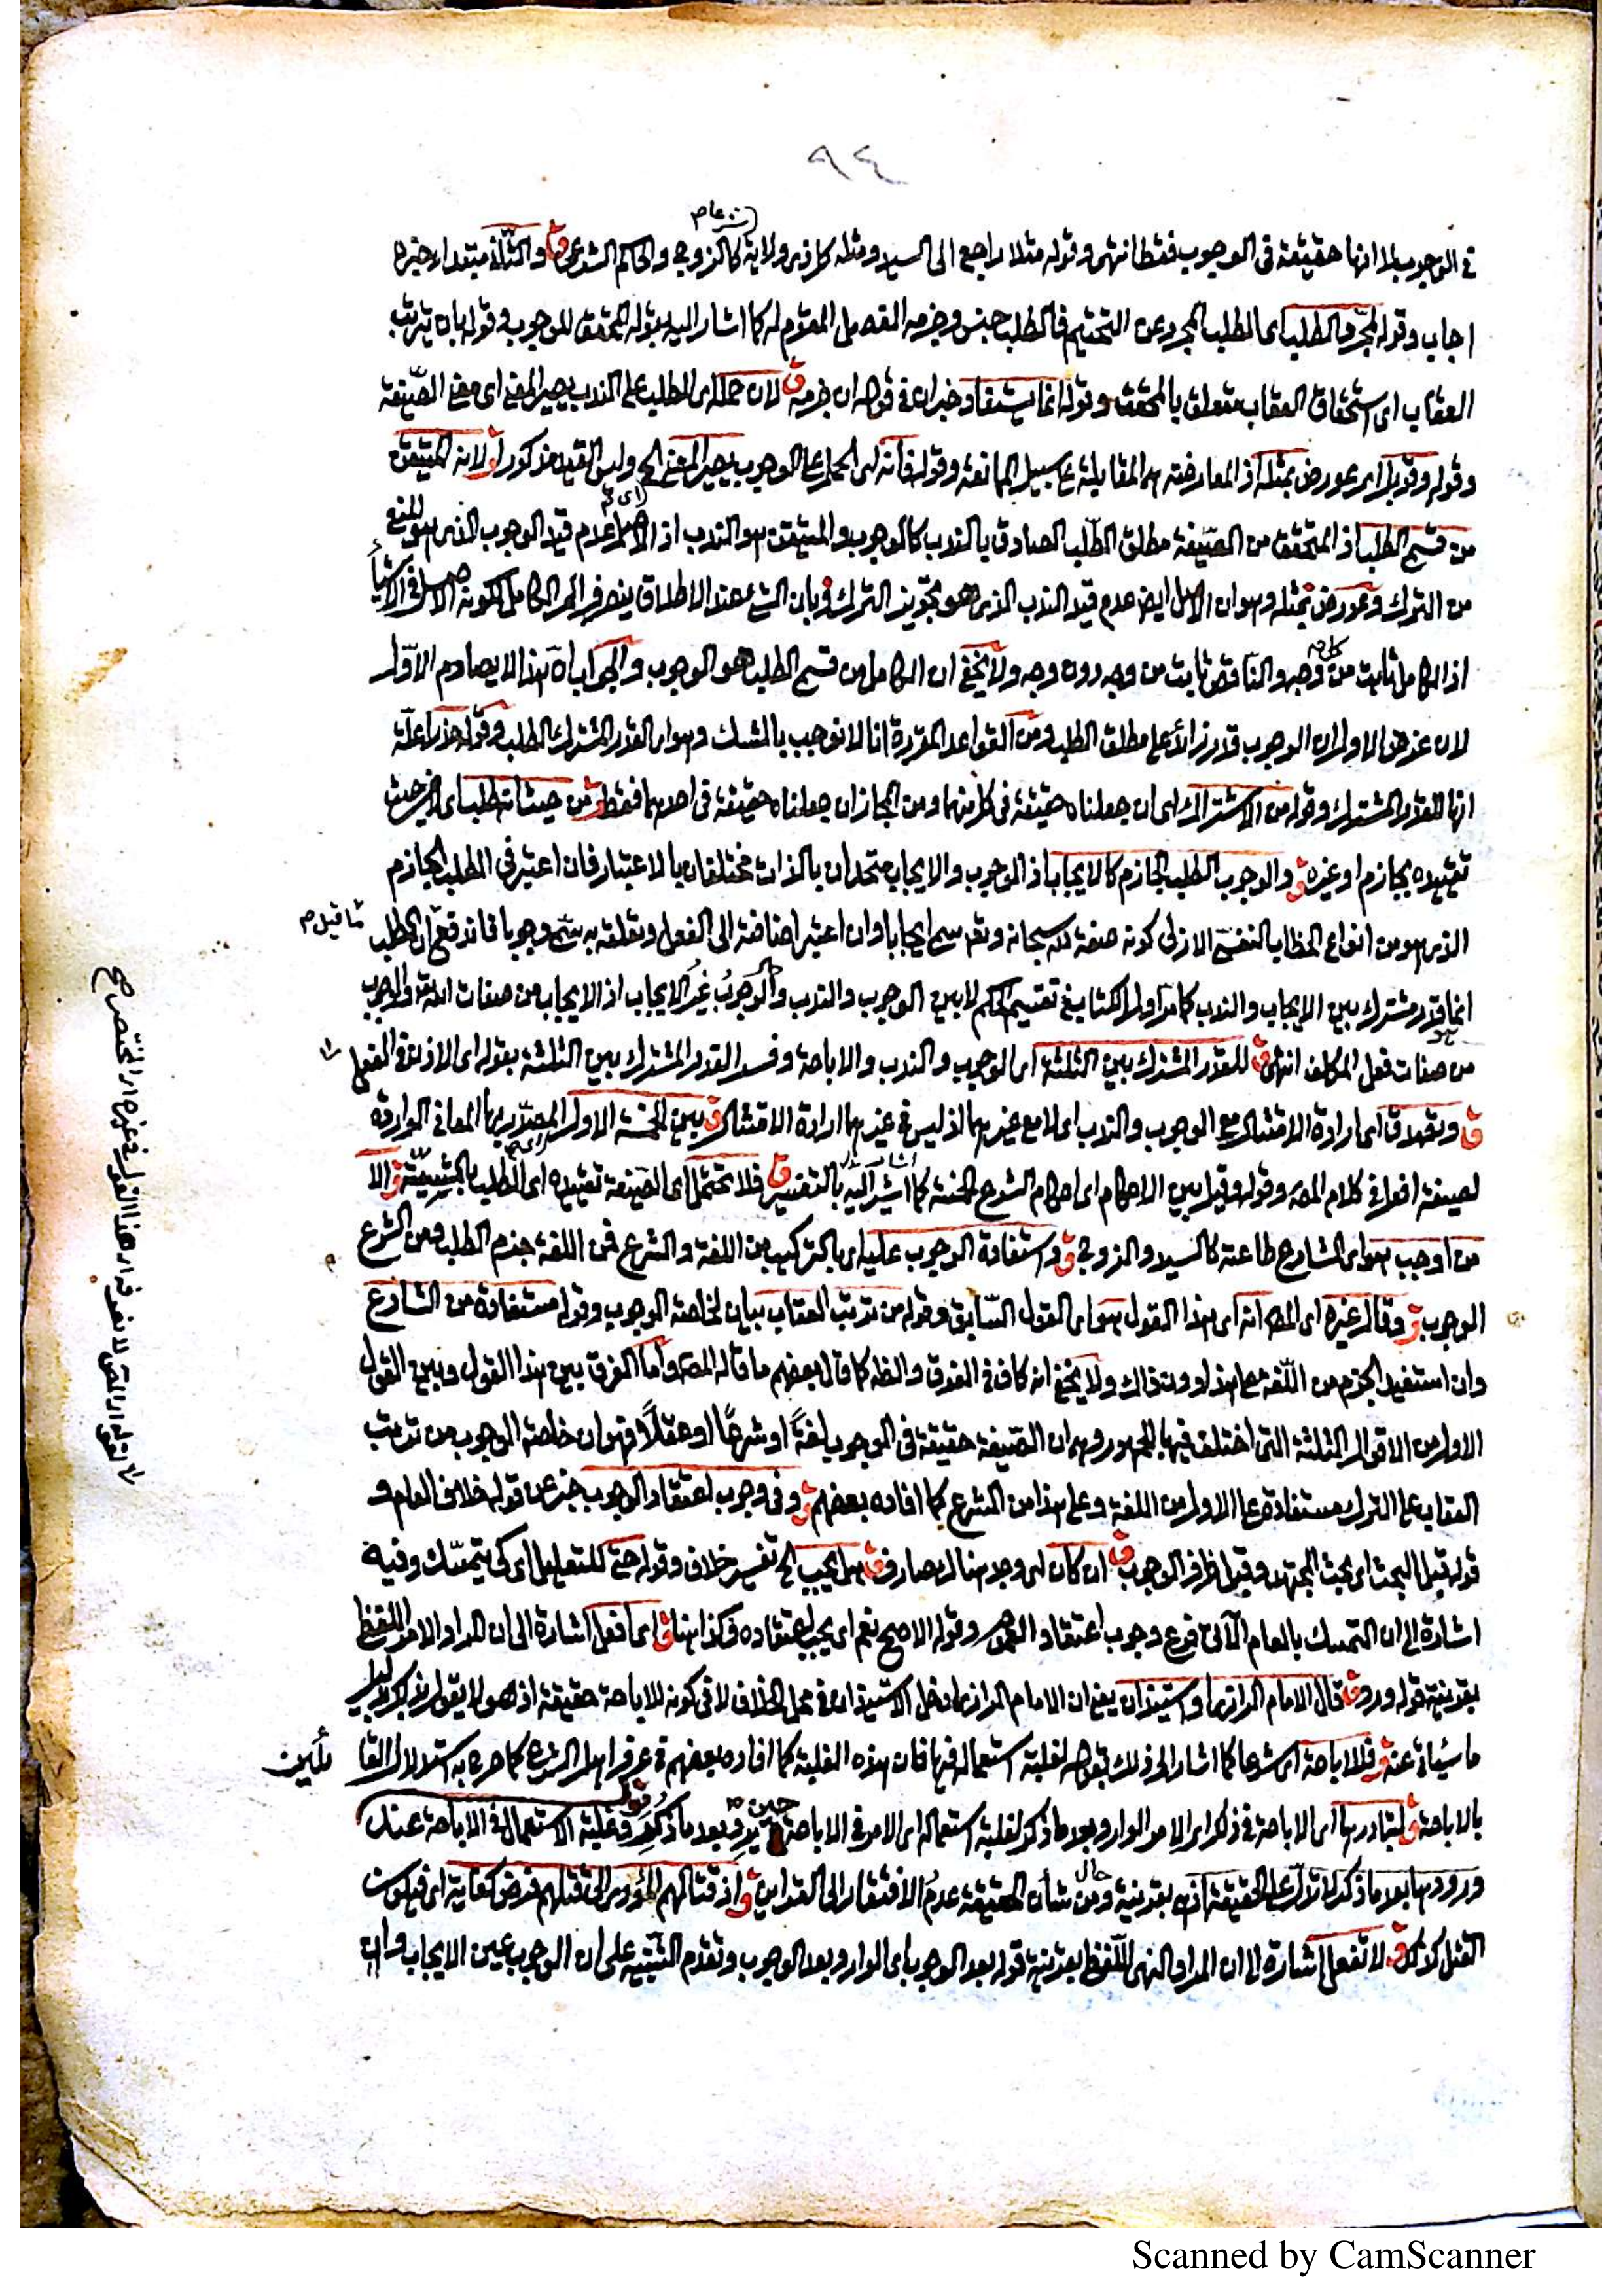 ٩٤
في الوجوب لا انها حقيقة في الوجوب فقط انتهى وقوله مثلا راجع الى السيد ومثله كل ذي ولاية كالزوج والحاكم الشرعي ق والثلاثة مبتدا خبره
اجاب وقوله المجرد الطلب اى الطلب المجرد عن التحتيم فالطلب جنس وجزمه الفصل المقوم له كما اشار اليه بقوله المحقق للوجوب وقوله بان يترتب
العقاب اى استحقاق العقاب متعلق بالمحقق وقوله انما يستفاد خبر ان في قوله ان جزمه ق لان حمله اى الطلب على الندب يصير المعنى اى معنى الصيغة
وقوله وقوبل اى عورض بمثله اذ المعارضة هى المقابلة على سبيل الممانعة وقوله فانه اى الحمل على الوجوب يصير المعنى الخ وليس القيد مذكورا ق لانه المتيقن
من قسمي الطلب اذ المتحقق من الصيغة مطلق الطلب الصادق بالندب كالوجوب والمتيقن هو الندب اذ الاصل عدم قيد الوجوب الذى هو المنع
من الترك وعورض بمثله وهو ان الاصل ايضا عدم قيد الندب الذى هو تجويز الترك وبان الشئ عند الاطلاق ينصرف الى الكامل لكونه الاصل في الاشياء
اذ الكامل ثابت من كل وجه والناقص ثابت من وجه دون وجه ولا يخفى ان الكامل من قسمي الطلب هو الوجوب والجواب ان هذا لا يصادم الاول
لان غرض الاول ان الوجوب قدر زائد على مطلق الطلب ومن القواعد المقررة انا لا نوجب بالشك وهو اى القدر المشترك الطلب وقوله حذرا علة
انها للقدر المشترك وقوله من الاشتراك اى ان جعلناه حقيقة في كل منهما ومن المجاز ان جعلناه حقيقة في احدهما فقط ق من حيث انه طلب اى من غير حيث
تقييده بجازم او غيره ق والوجوب الطلب الجازم كالايجاب اذ الوجوب والايجاب متحدان بالذات مختلفان بالاعتبار فان اعتبر في الطلب الجازم
الذى هو من انواع الخطاب النفسي الازلي كونه صفة لله سبحانه وتعالى سمي ايجابا وان اعتبر اضافته الى الفعل وتعلقه به سمي وجوبا فاندفع ان الطلب ما قيل م
انما قدر مشترك بين الايجاب والندب كما مر اول الكتاب في تقسيم الحكم لا بين الوجوب والندب والوجوب غير الايجاب اذ الايجاب من صفات الله تعالى والوجوب
من صفات فعل المكلف انتهى ق للقدر المشترك بين الثلثة اى الوجوب والندب والاباحة وفسر القدر المشترك بين الثلثة بقوله اى الاذن في الفعل
ق وتصدق اى ارادة الامتثال مع الوجوب والندب اى لا مع غيرهما اذ ليس في غيرهما ارادة الامتثال ق بين الخمسة الاول المصدر بها المعاني الواردة
لصيغة افعل في كلام المص وقوله وقيل بين الاحكام اى احكام الشرع الخمسة كما اشار اليه بالتفسير ق فلا تحتمل اى الصيغة تقييده اى الطلب بالمشيئة ق الا
من اوجب هو اى الشارع طاعته كالسيد والزوج ق واستفادة الوجوب عليه اى بالتركيب من اللغة والشرع فمن اللغة جزم الطلب ومن الشرع
الوجوب ق وقال غيره اى المص انه اى هذا القول هو اى القول السابق وقوله من ترتب العقاب بيان لخاصة الوجوب وقوله مستفادة من الشارع
وان استفيد الجزم من اللغة على هذا دون ذاك ولا يخفى انه كاف في الفرق والظه كما قال بعضهم ما قاله المص واما الفرق بين هذا القول وبين القول
الاول من الاقوال الثلثة التي اختلف فيها الجمهور وهو ان الصيغة حقيقة في الوجوب لغة او شرعا او عقلا فهو ان خاصة الوجوب من ترتب
العقاب على الترك مستفادة على الاول من اللغة وعلى هذا من الشرع كما افاده بعضهم ق وفى وجوب اعتقاد الوجوب خبر عن قوله خلاف العام و
قوله قبل البحث اى بحث المجتهد وقيل ظرف الوجوب ق ان كان اى وجد هناك صارف ق هل يجب الخ تفسير خلاف وقوله حتى للتعليل اى كي يتمسك وفيه
اشارة الى ان التمسك بالعام الآتي فرع وجوب اعتقاد العموم وقوله الاصح نعم اى يجب اعتقاده فكذا هنا ق اى افعل اشارة الى ان المراد الامر اللفظي
بقرينة قوله ورود ق قال الامام الرازى او استيذان يعني ان الامام الرازى ادخل الاستيذان في محل الخلاف لا في كونه للاباحة حقيقة اذ هو لا يقول به
ما سيأتى عنه ق فللاباحة اى شرعا كما اشار الى ذلك بقوله لغلبة استعماله فيها فان هذه الغلبة كما افاده بعضهم في عرف اهل الشرع كما صرح به استدلال القا ئلين
بالاباحة ق لتبادرها اى الاباحة في ذكر اى الامر الوارد بعد ما ذكر لغلبة استعماله اى الامر في الاباحة حين يرد بعد ما ذكر قوله وغلبة الاستعمال في الاباحة عند
ورودها بعد ما ذكر لا تدل على الحقيقة اذ هى بقرينة حال ومن شأن الحقيقة عدم الافتقار الى القراين ق واذ قتالهم المؤدى الى قتلهم فرض كفاية اى فيكون
القتل كذلك ق لا تفعل اشارة الى ان المراد النهى اللفظي بقرينة قوله بعد الوجوب اى الوارد بعد الوجوب وتقدم التنبيه على ان الوجوب عين الايجاب وان
Scanned by CamScanner